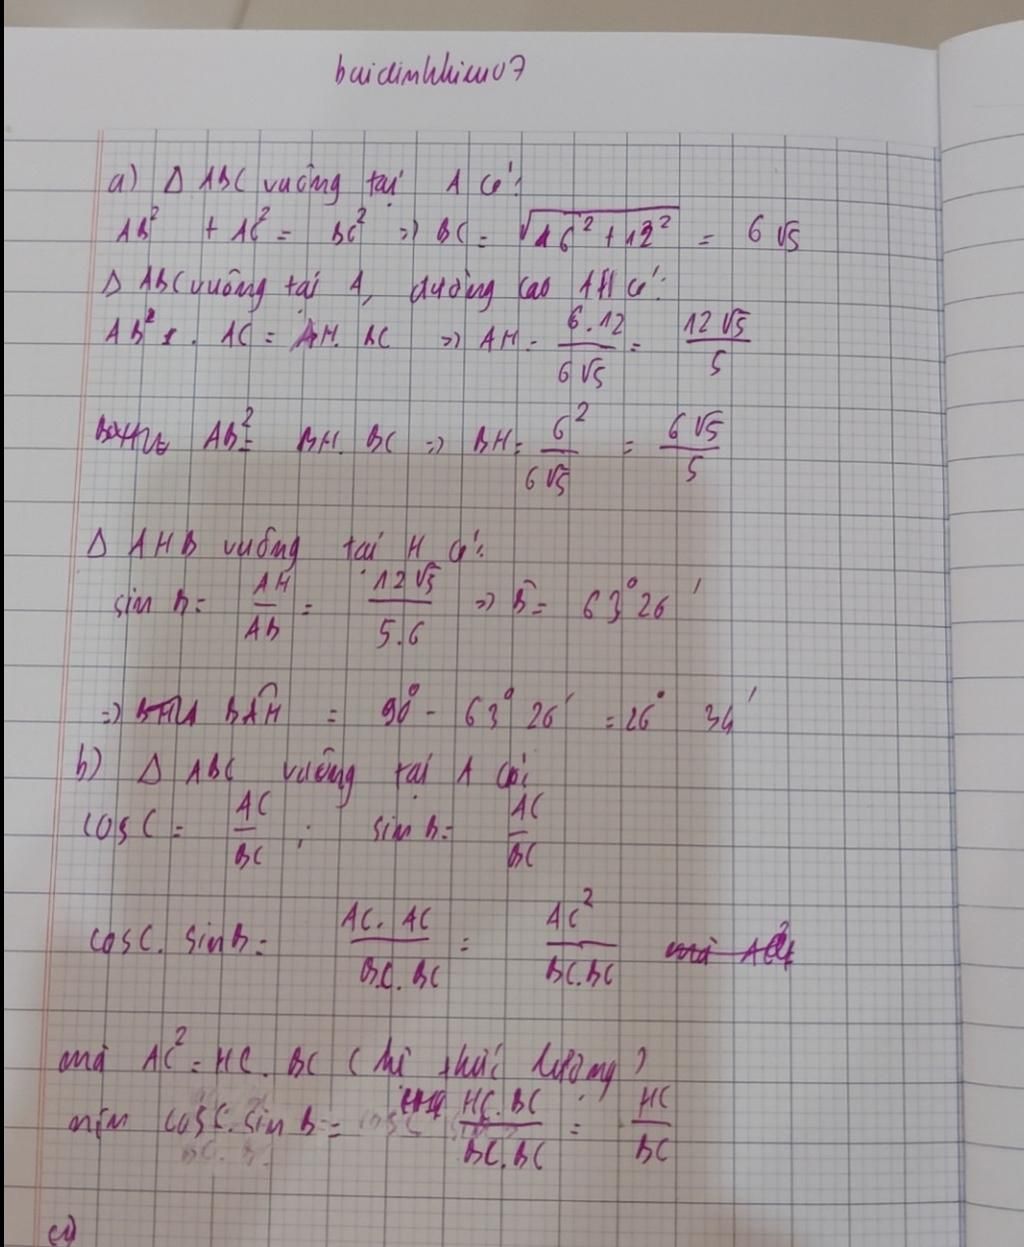 buidinhhieu07
a) Δ ABC vuông tại A có:
AB² + AC² = BC² => BC = √16² + 12² = 6√5
Δ ABC vuông tại A, đường cao AH có:
AB . AC = AH. BC => AH = 6.12/6√5 = 12√5/5
AB² = BH. BC => BH = 6²/6√5 = 6√5/5
Δ AHB vuông tại H có:
sin B = AH/AB = 12√5/5.6 => B̂ = 63°26'
=> BÂH = 90° - 63°26' = 26°34'
b) Δ ABC vuông tại A có:
cosC = AC/BC ; sin B = AC/BC
cosC. sinB = AC.AC/BC.BC = AC²/BC.BC
mà AC² = HC. BC (hệ thức lượng)
nên cosC.sin B = HC.BC/BC.BC = HC/BC
c)